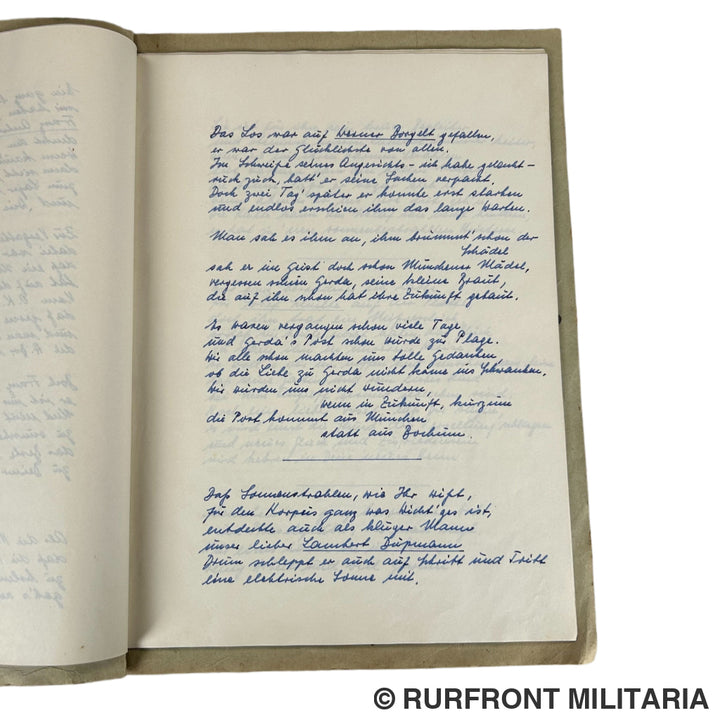 Das Los war auf Werner Borgelt gefallen,
er war der Glücklichste von allen.
Im Schweiße seines Angesichts – ich habe gelacht –
ruck zuck, hatt' er seine Sachen verpackt.
Doch zwei Tag' später er konnte erst starten
und endlos erschien ihm das lange Warten.
Man sah es ihm an, ihm brummt' schon der
Schädel
sah er im Geist doch schon Münchener Mädel,
vergessen schien Gerda, seine kleine Braut,
die auf ihn schon hat ihre Zukunft gebaut.
Es waren vergangen schon viele Tage
und Gerda's Post schon wurde zur Plage.
Wir alle schon machten uns tolle Gedanken,
ob die Liebe zu Gerda nicht käme ins Schwanken.
Wir würden uns nicht wundern,
wenn in Zukunft, kurzum
die Post kommt aus München
statt aus Bochum.
Daß Sonnenstrahlen, wie Ihr wißt,
für den Korpus ganz was Wicht'ges ist,
entdeckte auch als kluger Mann
unser lieber Lambert Düpmann
Drum schleppt er auch auf Schritt und Tritt
eine elektrische Sonne mit.
© RURFRONT MILITARIA